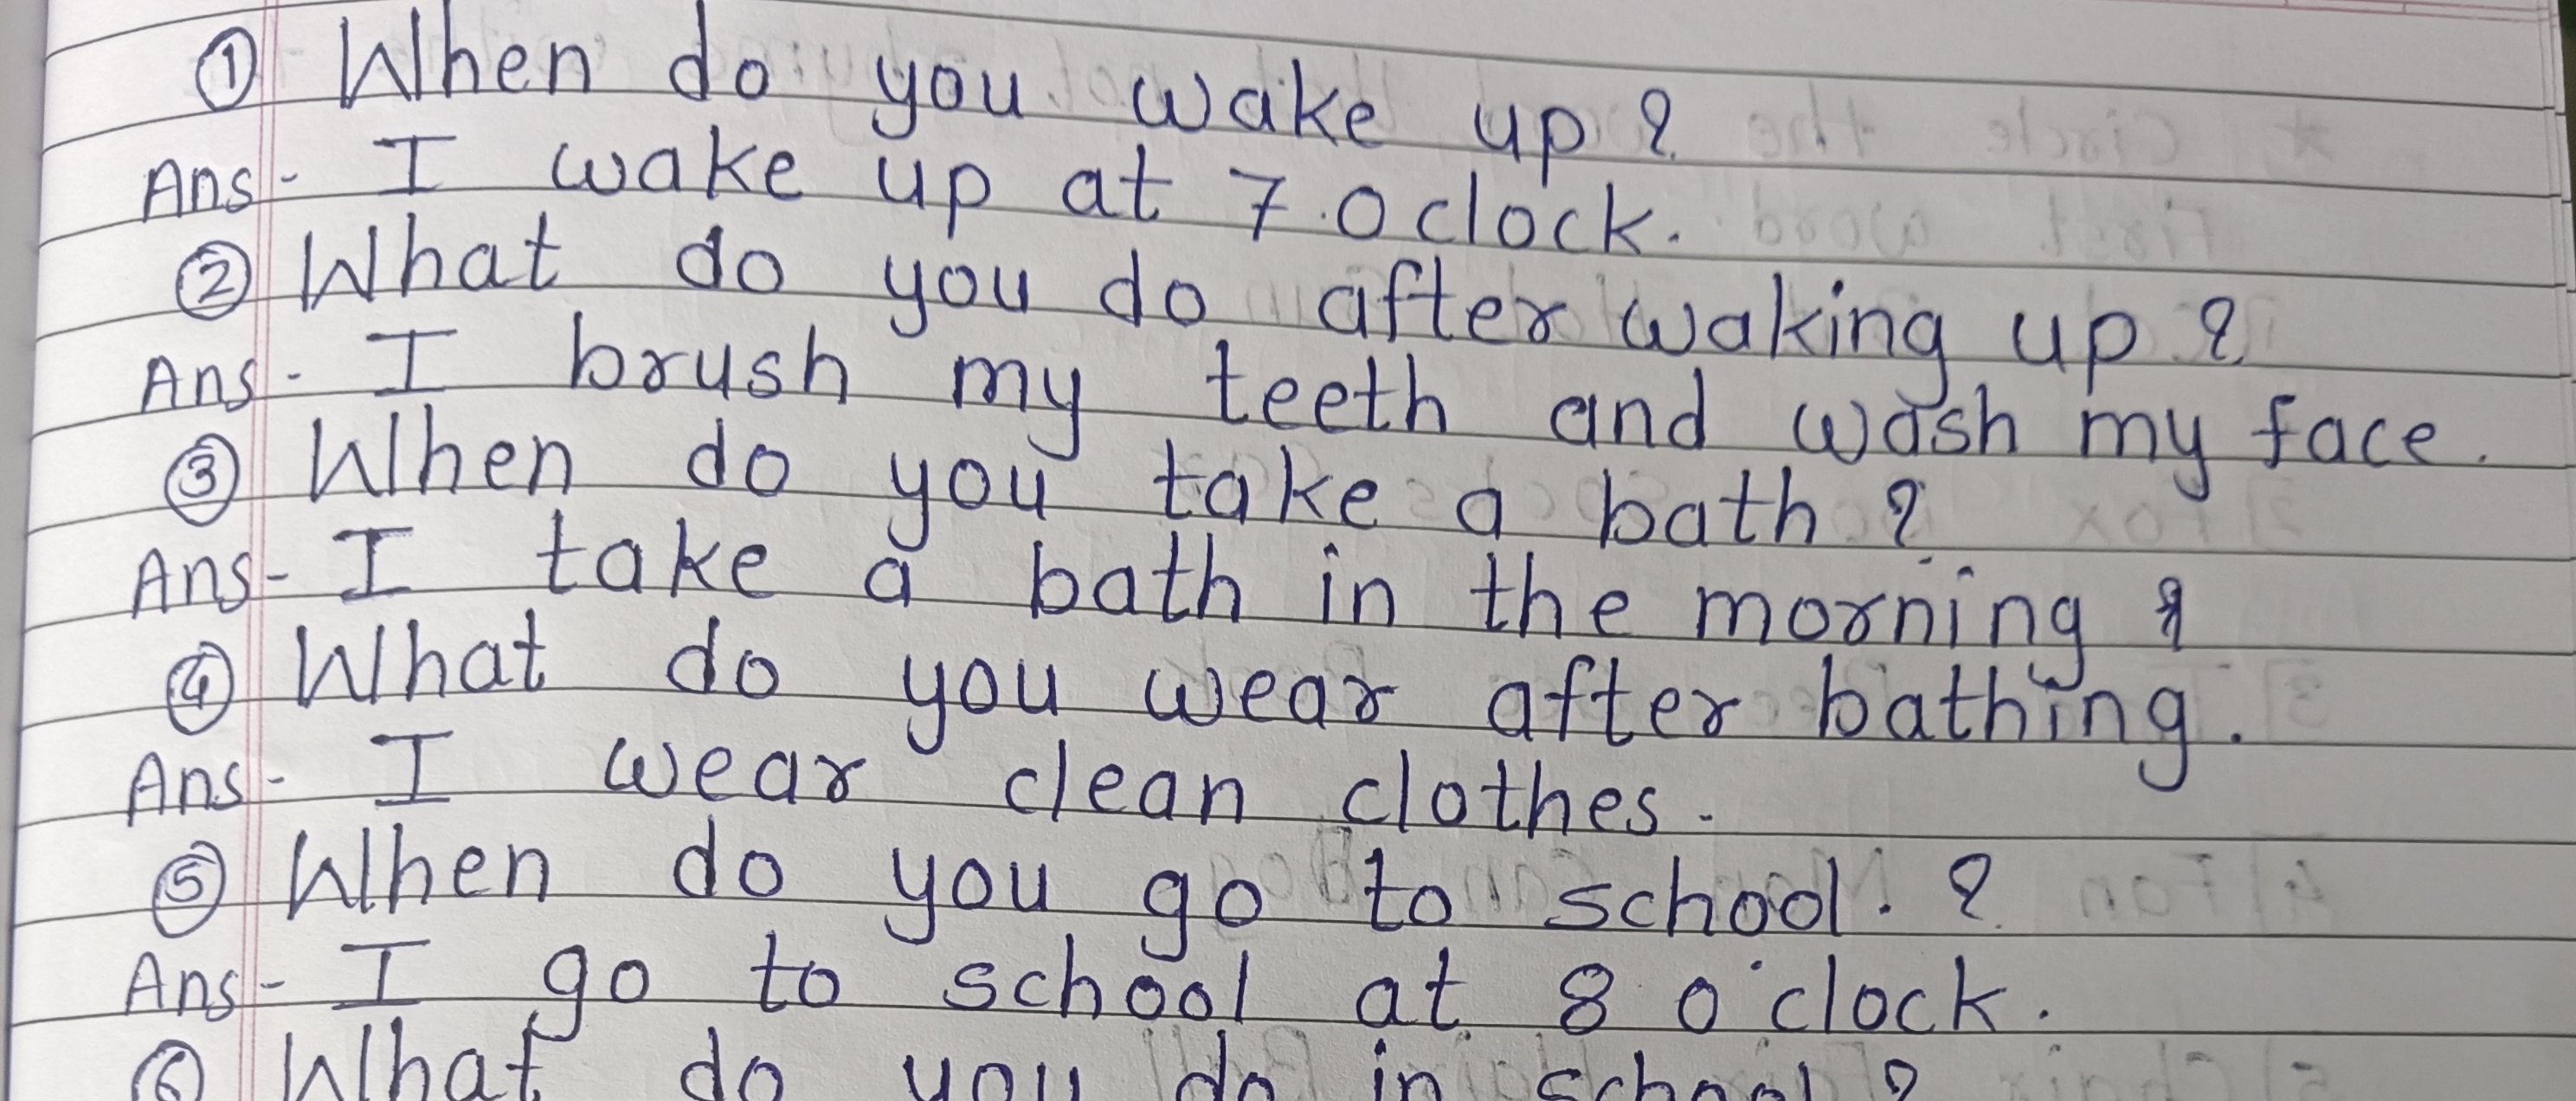 ① When do you wake up ?
Ans - I wake up at 7 . O clock.
② What do you do after waking up ?
Ans - I brush my teeth and wash my face.
③ When do you take a bath ?
Ans - I take a bath in the morning
④ What do you wear after bathing.
Ans - I wear clean clothes.
⑤ When do you go to school. ?
Ans - I go to school at 8 o'clock.
⑥ What do you do in school ?